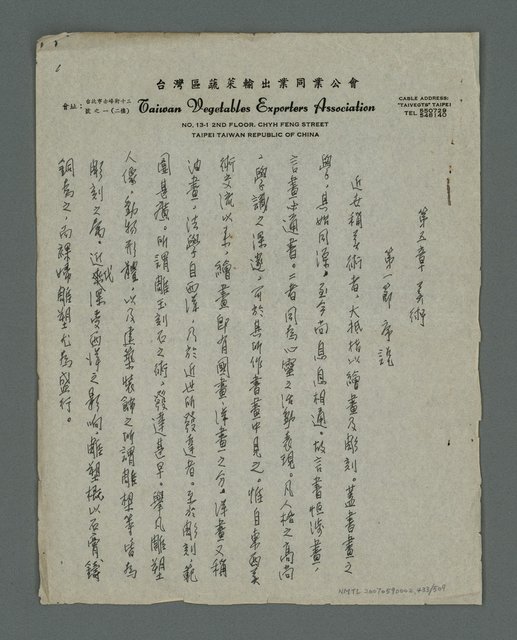 台灣區蔬菜輸出業同業公會
會址：台北市赤峰街十三號之一(二樓)
Taiwan Vegetables Exporters Association
CABLE ADDRESS: "TAIVEGTS" TAIPEI
TEL. 550729 548140
NO. 13-1 2ND FLOOR, CHYH FENG STREET
TAIPEI TAIWAN REPUBLIC OF CHINA
第五章 美術
第一節 序說
近世稱美術者，大抵指以繪畫及彫刻。蓋書畫之
學，其始同源。至今尚息息相通。故言書恒涉畫，
言畫必通書。二者同為心靈之活動表現。凡人格之高尚
，學識之深邃，可於其所作書畫中見之。惟自東西美
術交流以来，繪畫即有國畫、洋畫之分。洋畫又稱
油畫，法學自西洋，乃於近世所發達者。至於彫刻範
圍甚廣。所謂雕玉刻石之術，發達甚早。舉凡雕塑
人像，動物形體，以及建築裝飾之所謂雕樑等皆為
彫刻之屬。近代深受西洋之影响雕塑概以石膏鑄
銅為之，而裸婦雕塑尤為盛行。
NMTL 20070590002 433/509